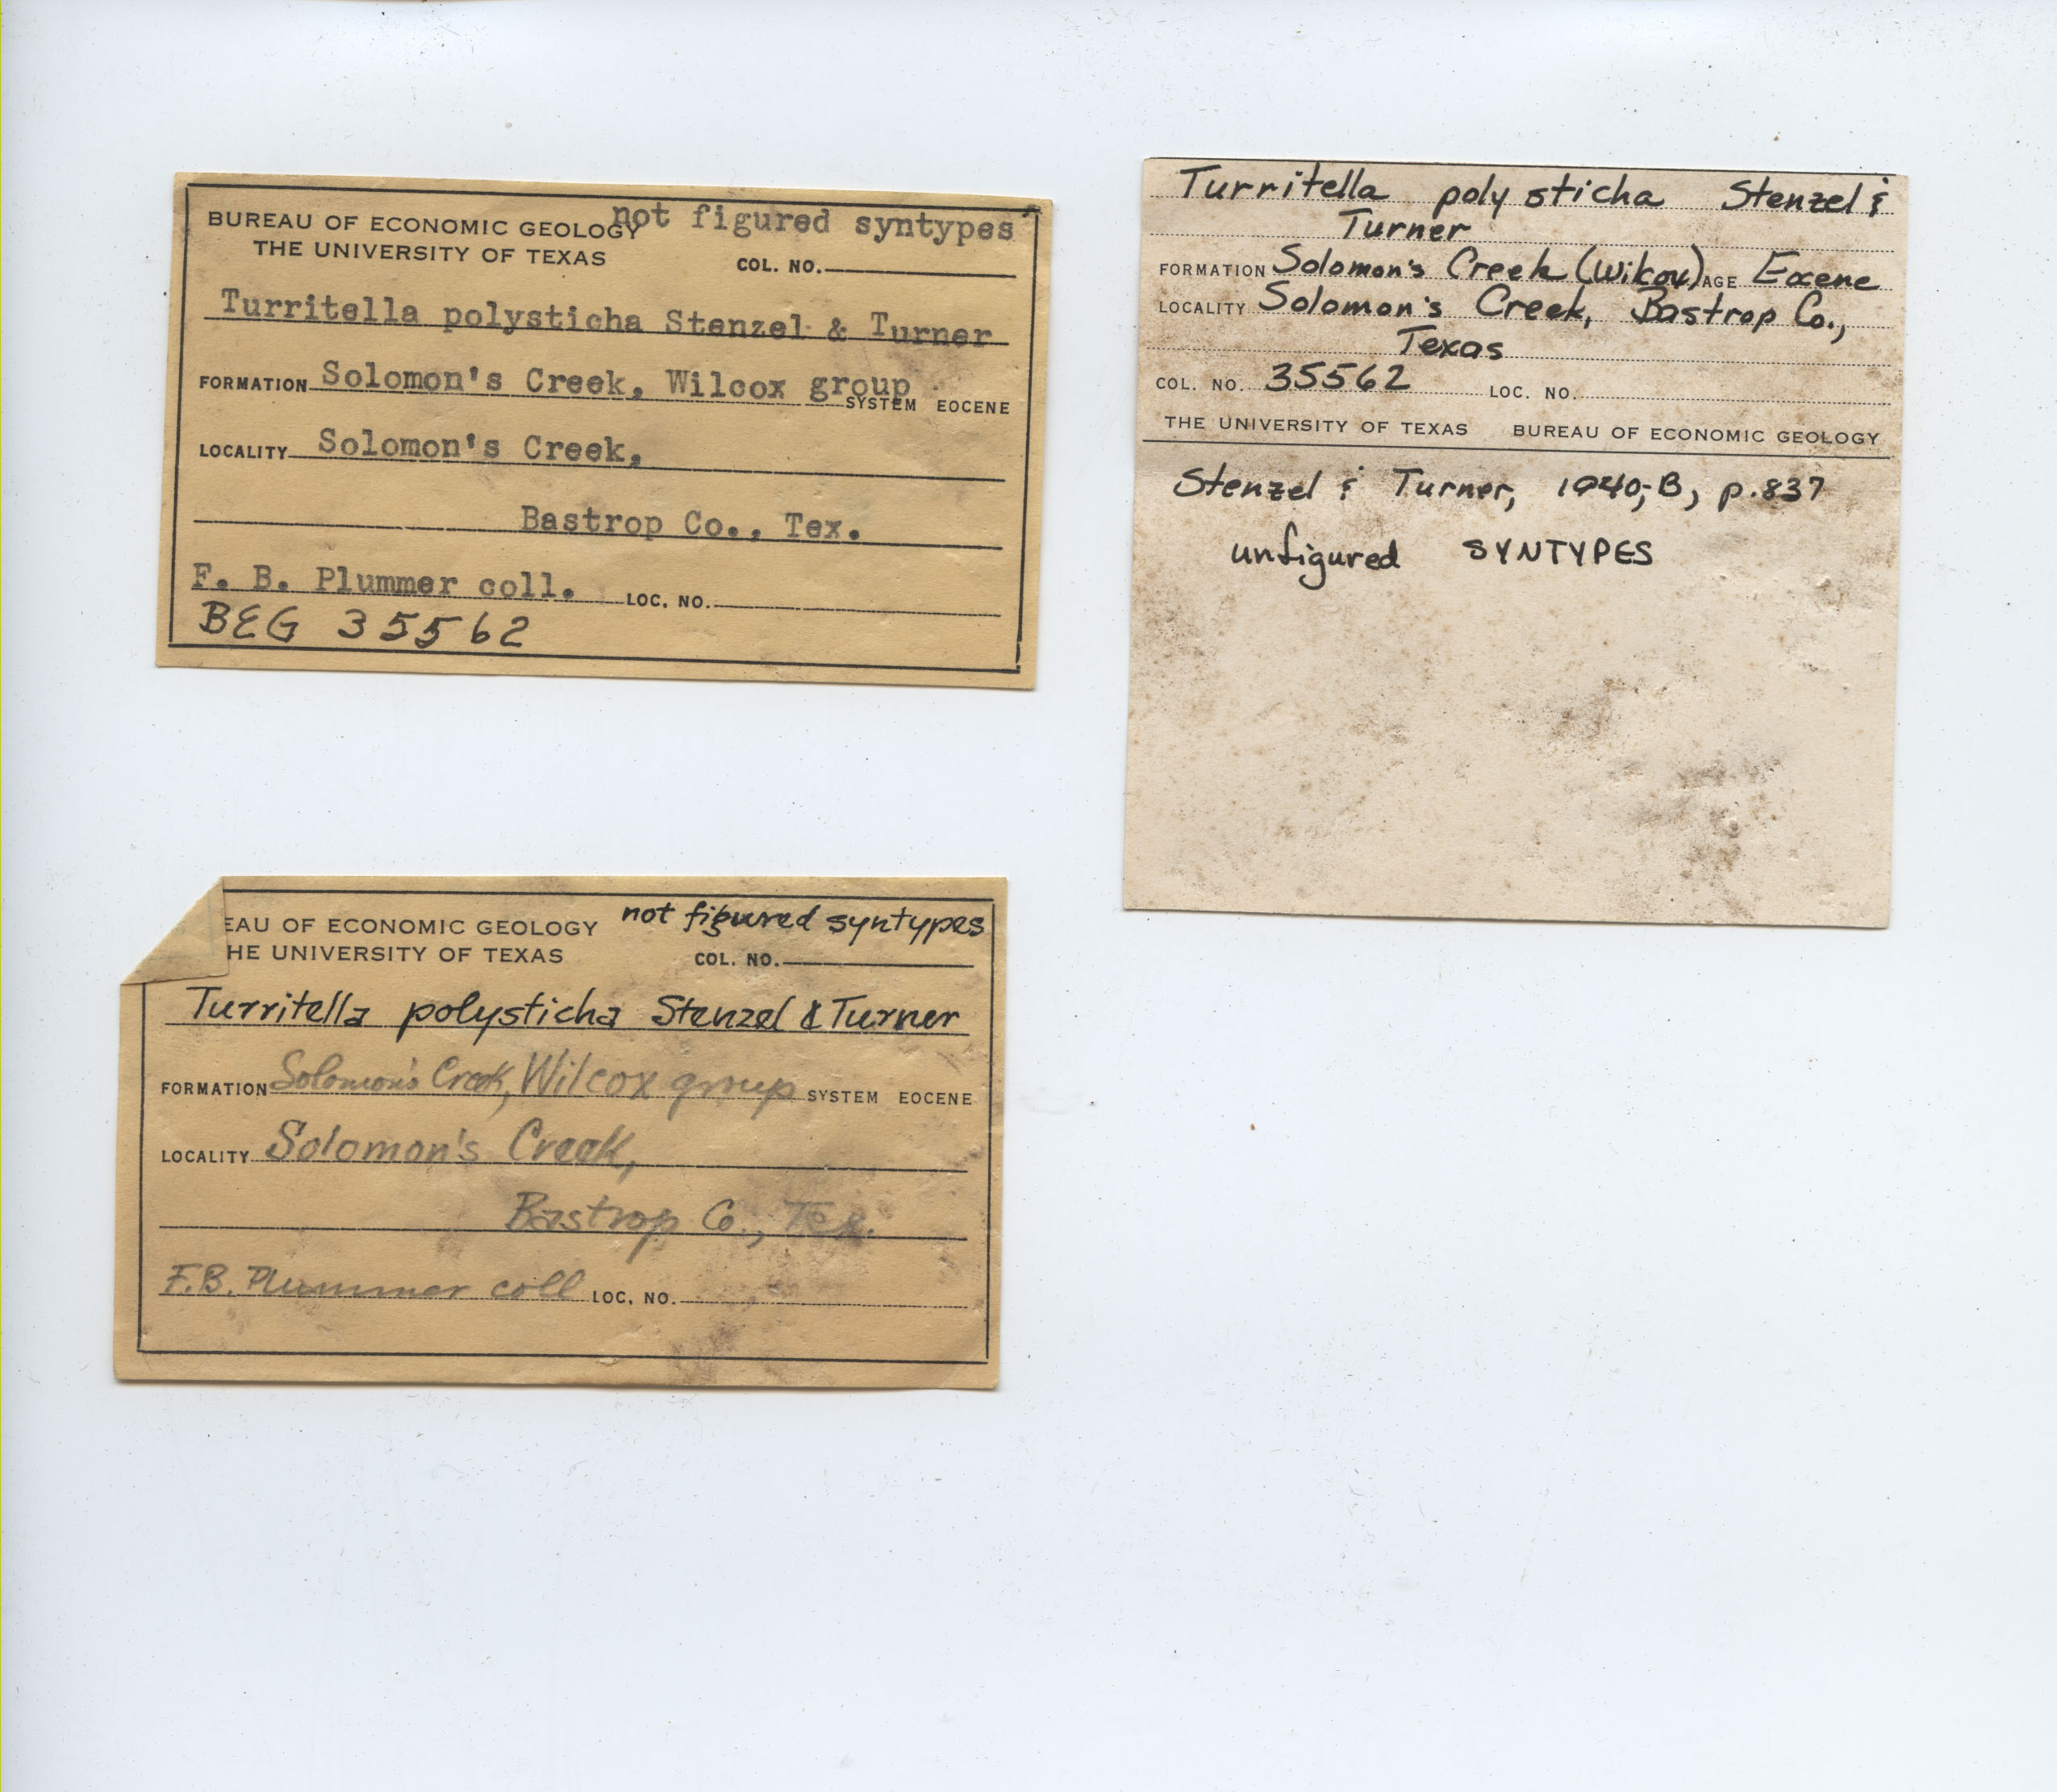 BUREAU OF ECONOMIC GEOLOGY not figured syntypes
THE UNIVERSITY OF TEXAS COL. NO.
Turritella polysticha Stenzel & Turner
FORMATION Solomon's Creek, Wilcox group
SYSTEM EOCENE
LOCALITY Solomon's Creek,
Bastrop Co., Tex.
F. B. Plummer coll. LOC. NO.
BEG 35562
Turritella polysticha Stenzel &
Turner
FORMATION Solomon's Creek (Wilcox) AGE Eocene
LOCALITY Solomon's Creek, Bastrop Co.,
Texas
COL. NO. 35562 LOC. NO.
THE UNIVERSITY OF TEXAS BUREAU OF ECONOMIC GEOLOGY
Stenzel & Turner, 1940,-B, p.837
unfigured SYNTYPES
EAU OF ECONOMIC GEOLOGY not figured syntypes
HE UNIVERSITY OF TEXAS COL. NO.
Turritella polysticha Stenzel & Turner
FORMATION Solomon's Creek, Wilcox group SYSTEM EOCENE
LOCALITY Solomon's Creek,
Bastrop Co., Tex.
F.B. Plummer coll LOC. NO.